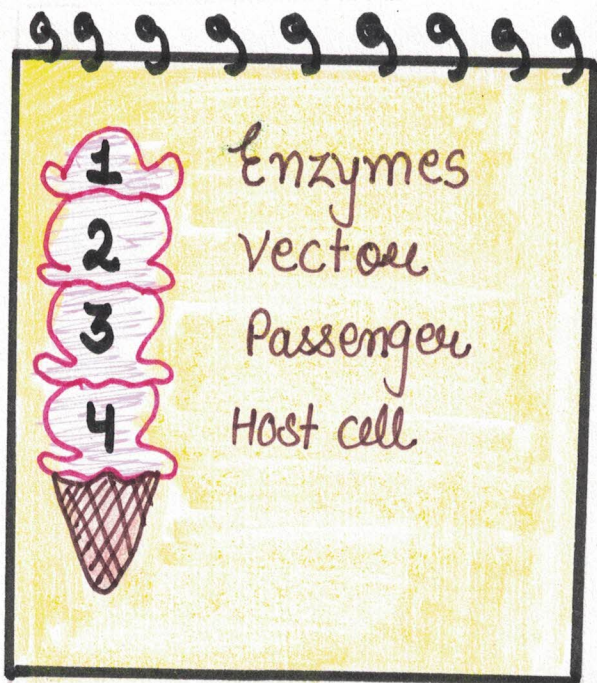 1 Enzymes
2 Vector
3 Passenger
4 Host cell